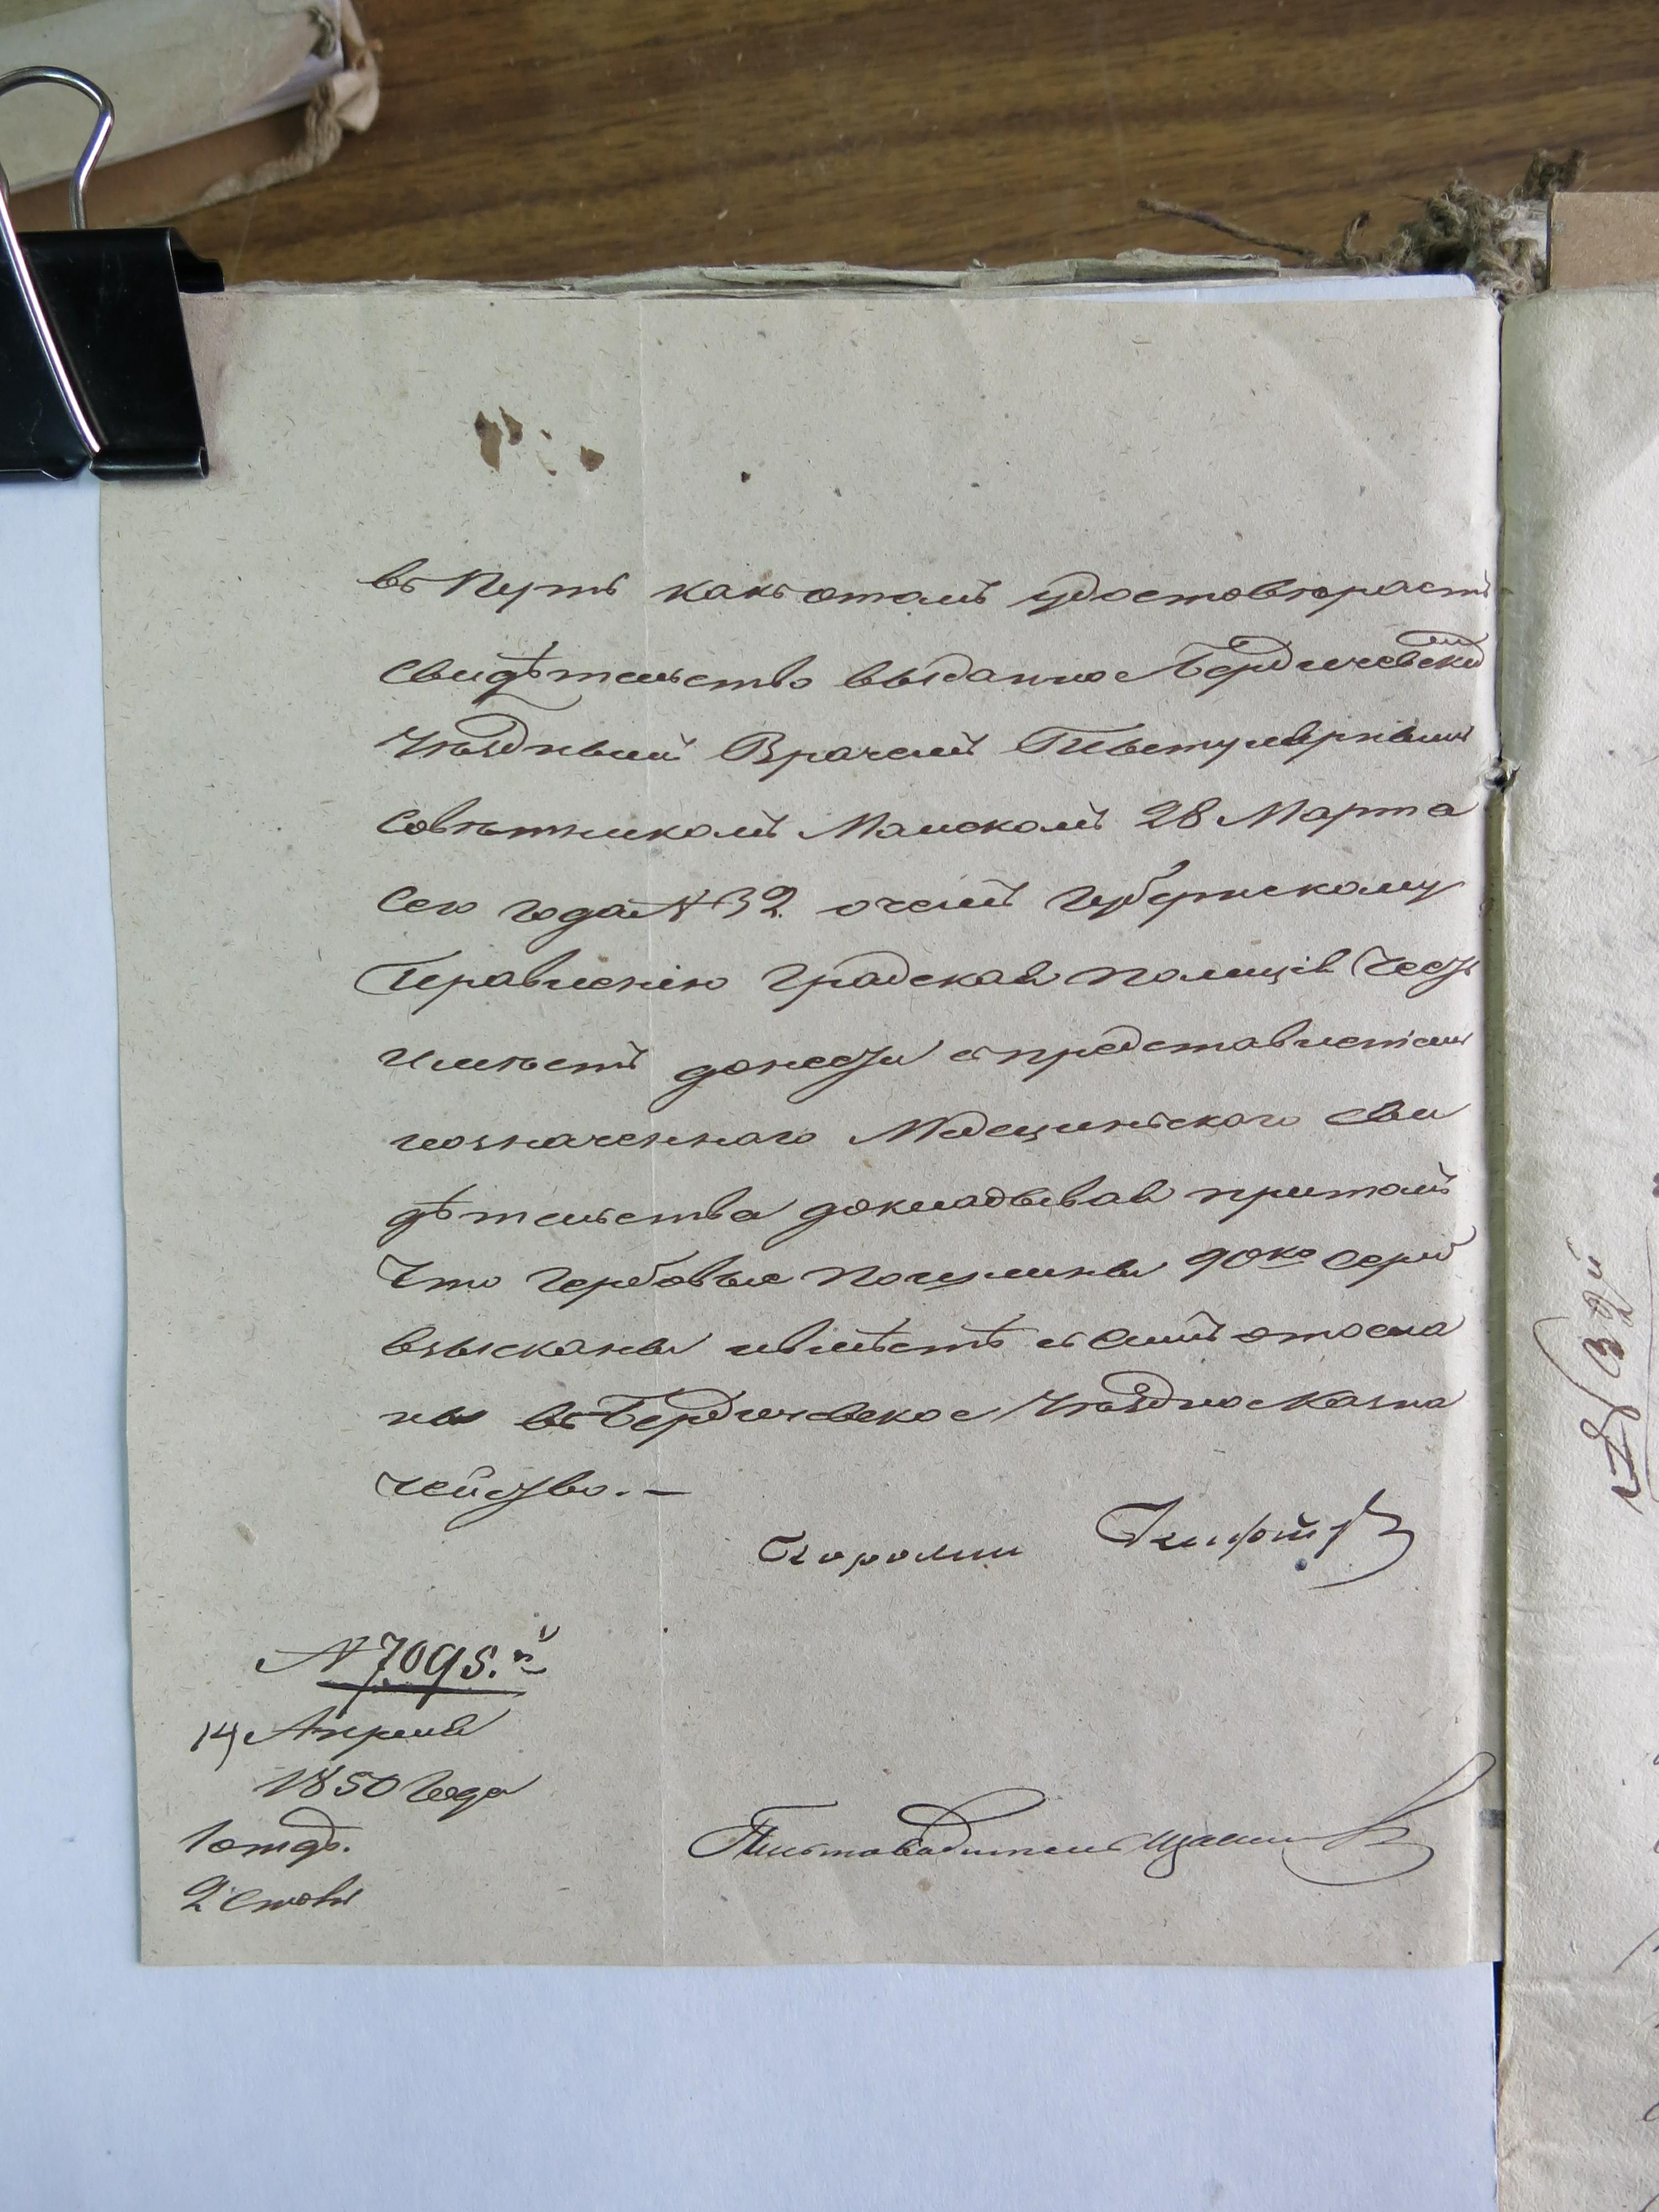 въ Путь какъ отомъ удостовѣряетъ
Свидѣтельство выданное Бердичевским
Уѣзднымъ Врачемъ Титулярнымъ
Совѣтникомъ 28 Марта
Сего года № 32. очемъ Губернскому
Правленію Градская полиція Чест
имѣетъ донести съ представленіемъ
означеннаго Медецинского Сви
дѣтельства докладывая притомъ
Что гербовые пошлины 90 ко Сереб
взысканы ивмѣстѣ съ Симъ отосла
ны въ Бердичевское Уѣздное Казна
чейство. —
№ 7095.й
14 Апреля
1850 Года
1 отд.
2 Столъ
Письмоводитель
32й